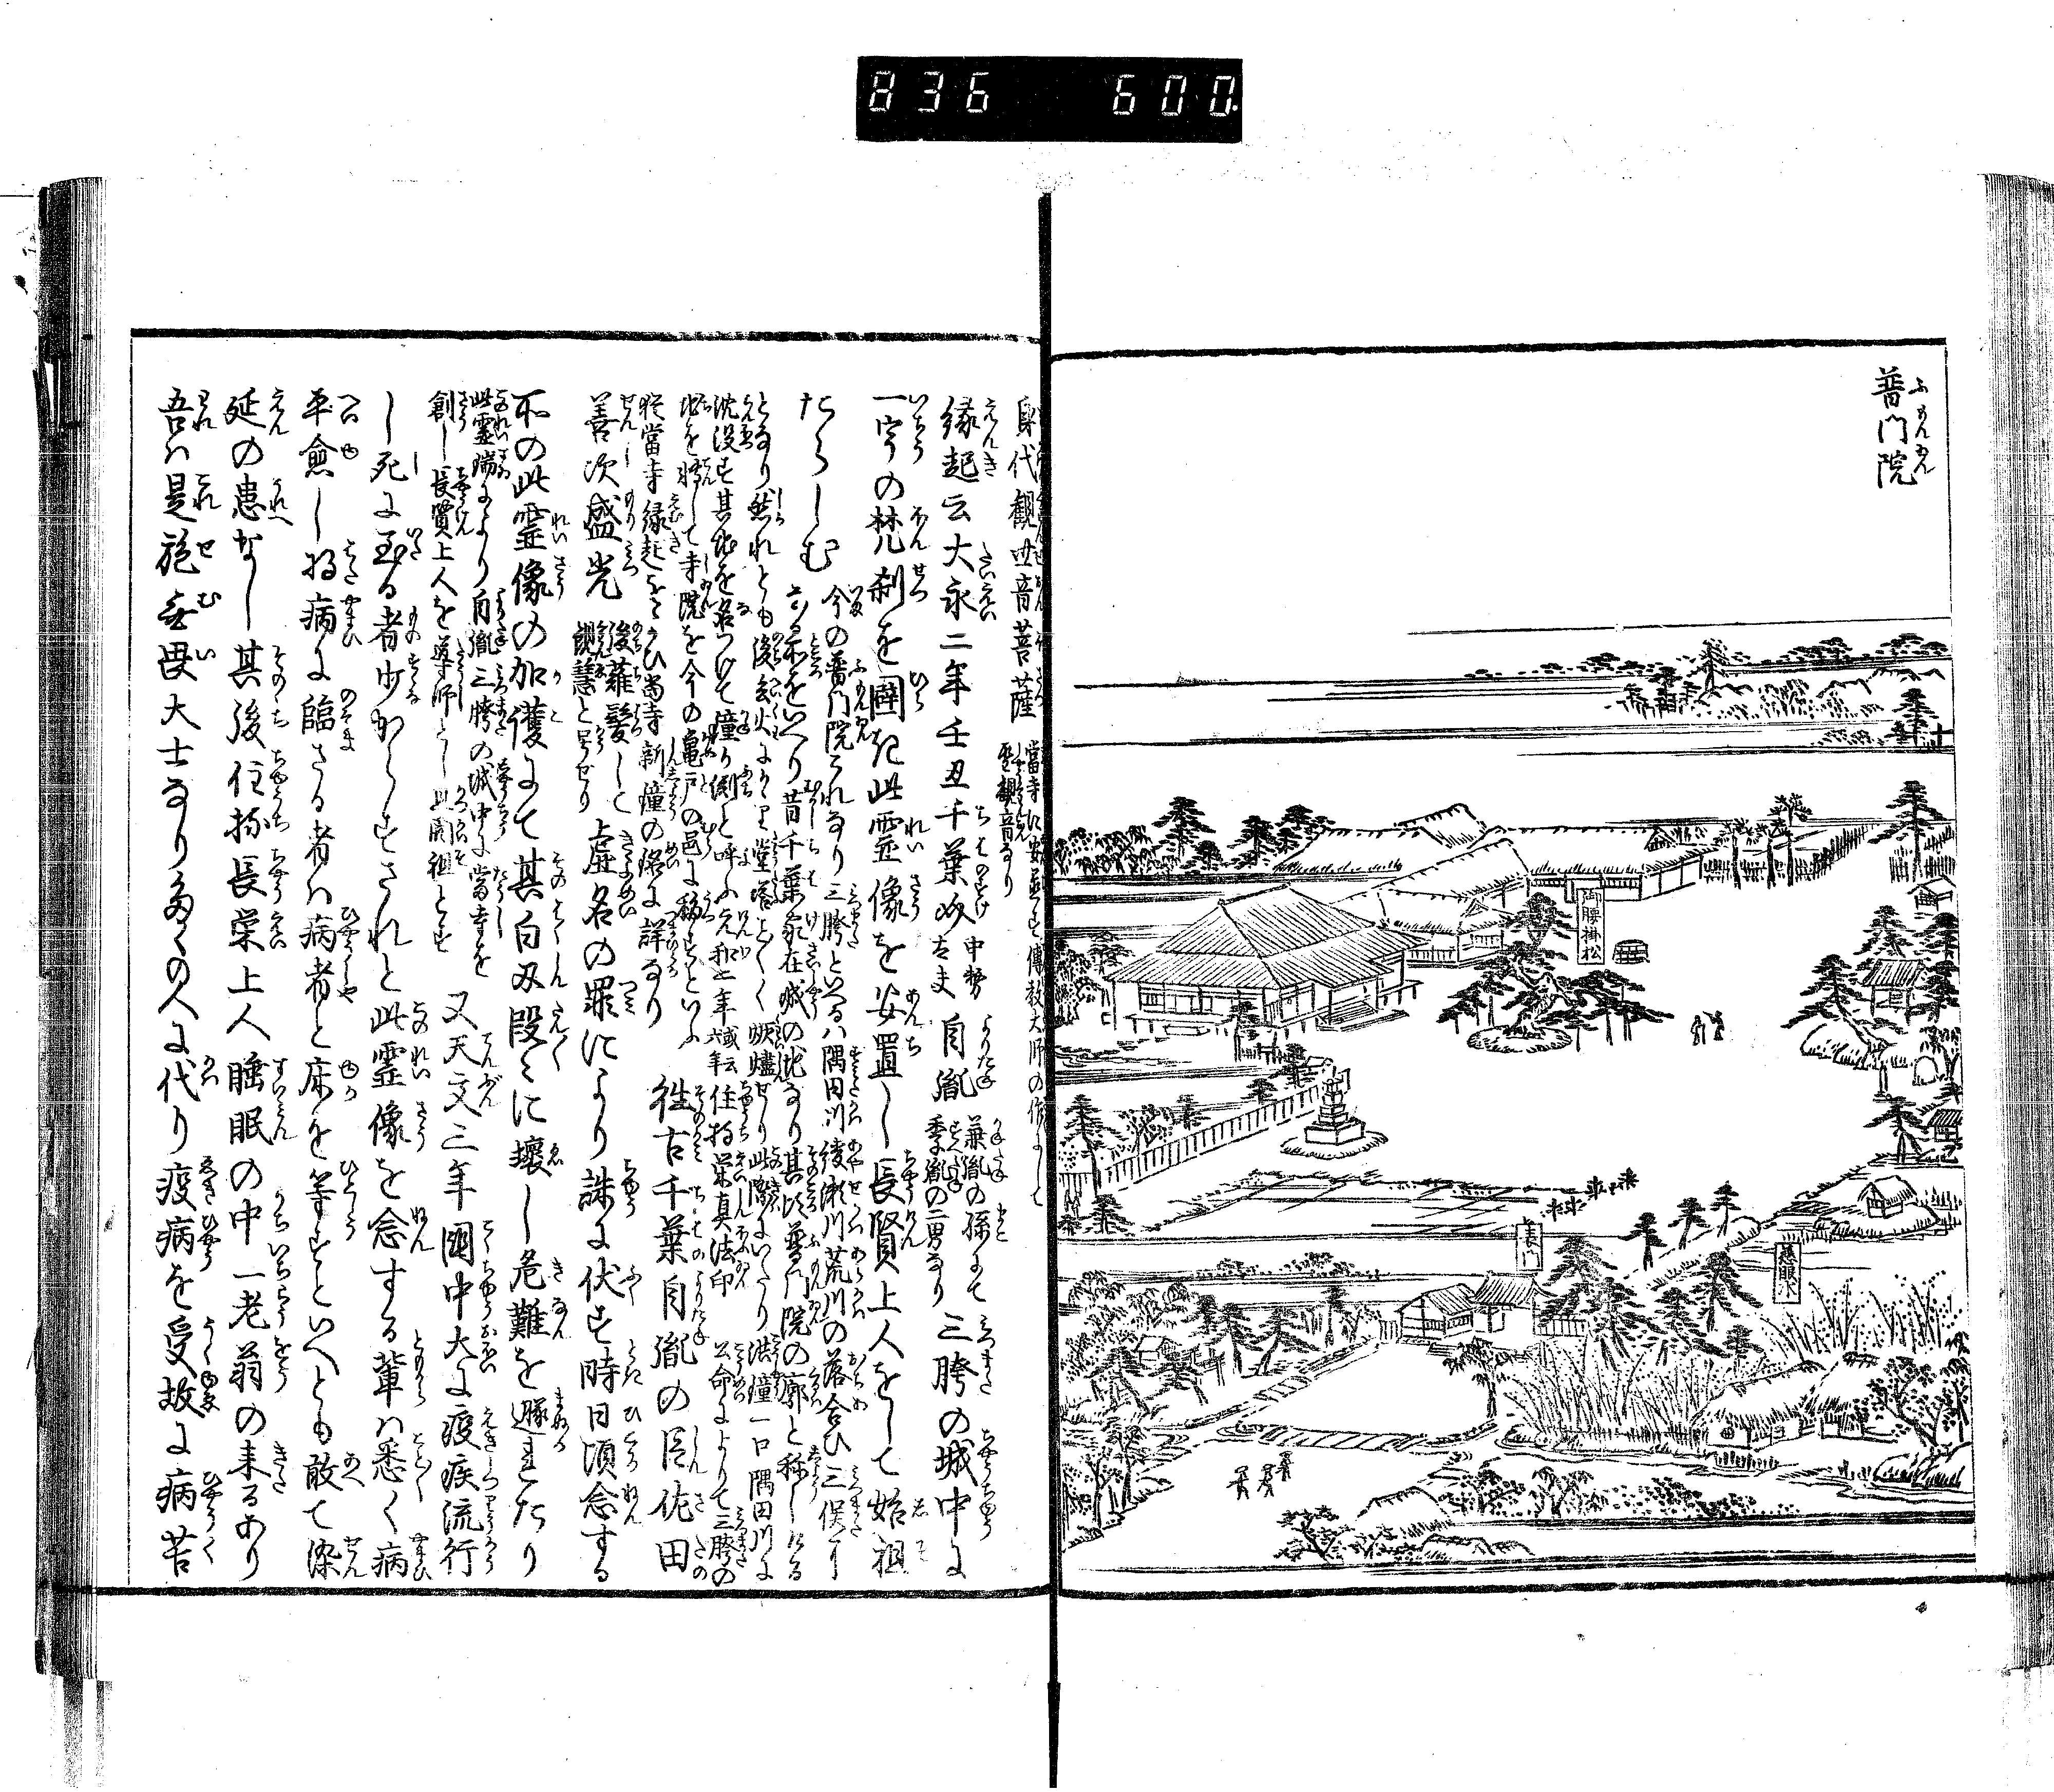 836 600
普門院
ふもんゐん
御腰掛松
表門
慈眼水
身代観世音菩薩 當寺に安置す傳教大師の作にして聖観音なり
縁起云大永二年壬丑千葉次中務太夫自胤兼胤の孫にて季胤の二男なり三胯の城中に
一宇の梵刹を闢き此霊像を安置し長賢上人をして始祖
たらしむ今の普門院これなり三胯といへるハ隅田川綾瀬川荒川の落合ひ三俣に
なる所をいへり昔千葉家在城の地なり其比普門院の廓と称しける
となり然れとも後兵火にかゝり堂塔こと〳〵く燬燼せり此際にいたり洪鐘一口隅田川に
沈没す其地を名つけて鐘か渕と呼ふ元和二年或云六年住持栄真法印公命によりて三胯の
地を轉して寺院を今の亀戸の邑に移すといふ
猶當寺縁起をよひ當寺新鐘の銘に詳なり
往古千葉自胤の臣佐田
善次盛光後薙髪して観慧と号せり虚名の罪により誅に伏す時日頃念する
所の此霊像の加護にて其白刃段々に壊し危難を遯れたり
此霊瑞により自胤三胯の城中に當寺を
創し長賢上人を導師として開祖とす
又天文二年國中大に疫疾流行
し死に至る者少からすされと此霊像を念する輩ハ悉く病
平愈し将病に臨さる者ハ病者と床を等すといへとも敢て染
延の患なし其後住持長栄上人睡眠の中一老翁の来るあり
吾ハ是施無畏大士なり多くの人に代り疫病を受故に病苦